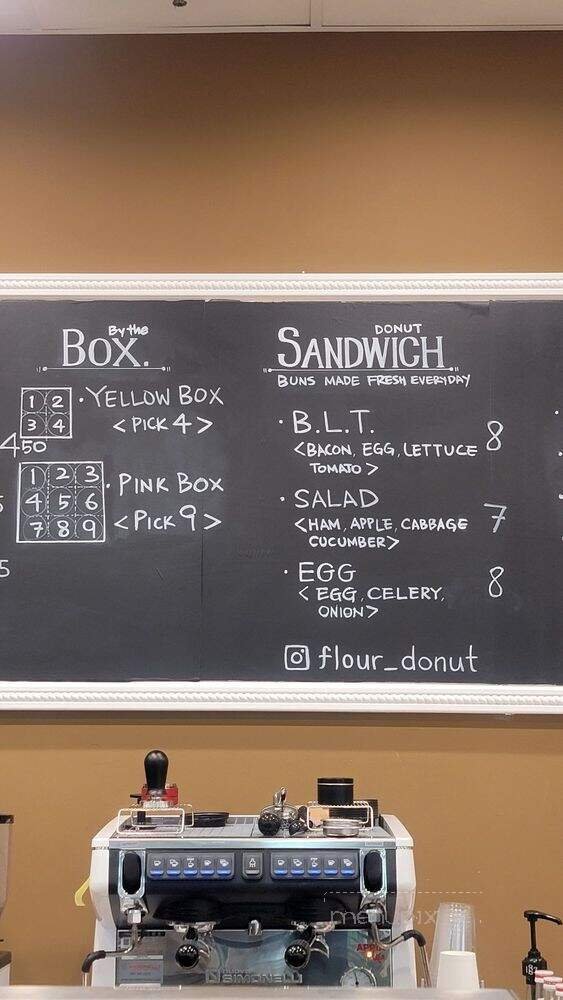 By the
BOX.
1 2
3 4
· YELLOW BOX
< PICK 4 >
450
1 2 3
4 5 6
7 8 9
· PINK BOX
< PICK 9 >
5
DONUT
SANDWICH
BUNS MADE FRESH EVERYDAY
· B.L.T. 8
<BACON, EGG, LETTUCE
TOMATO>
· SALAD 7
<HAM, APPLE, CABBAGE
CUCUMBER>
· EGG 8
< EGG, CELERY,
ONION>
flour_donut
nuova
SIMONELLI